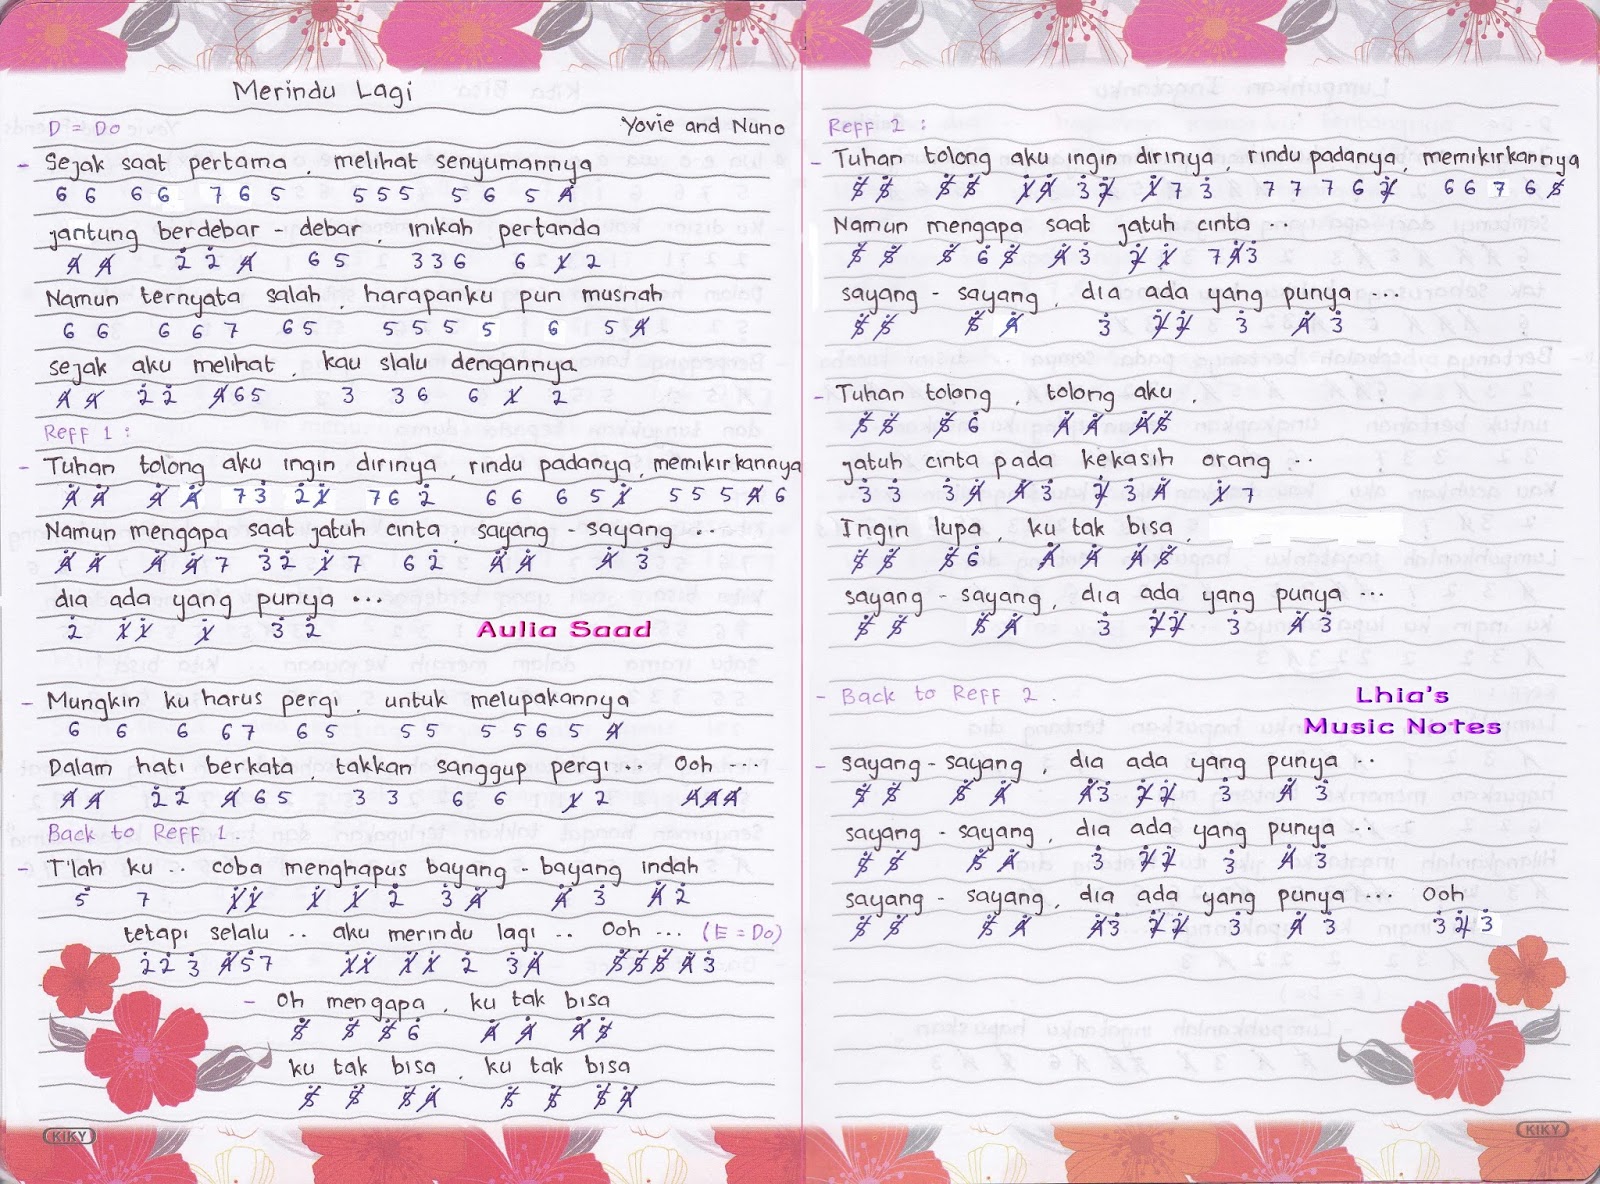 Merindu Lagi
D = Do
Yovie and Nuno
- Sejak saat pertama , melihat senyumannya
6 6 6 6 7 6 5 5 5 5 5 6 5 4
jantung berdebar - debar , inikah pertanda
4 4 2 2 4 6 5 3 3 6 6 1 2
Namun ternyata salah , harapanku pun musnah
6 6 6 6 7 6 5 5 5 5 5 6 5 4
sejak aku melihat , kau slalu dengannya
4 4 2 2 4 6 5 3 3 6 6 1 2
Reff 1 :
- Tuhan tolong aku ingin dirinya , rindu padanya , memikirkannya
4 4 4 4 7 3 2 1 7 6 2 6 6 6 5 1 5 5 5 4 6
Namun mengapa saat jatuh cinta , sayang - sayang ..
4 4 4 4 7 3 2 1 7 6 2 4 4 4 3
dia ada yang punya ...
2 1 1 1 3 2
Aulia Saad
- Mungkin ku harus pergi , untuk melupakannya
6 6 6 6 7 6 5 5 5 5 5 6 5 4
Dalam hati berkata , takkan sanggup pergi ... Ooh ...
4 4 2 2 4 6 5 3 3 6 6 1 2 4 4 4
Back to Reff 1 .
- T'lah ku .. coba menghapus bayang - bayang indah
5 7 1 1 1 1 2 3 4 4 3 4 2
tetapi selalu .. aku merindu lagi .. Ooh ... (E = Do)
2 2 3 4 5 7 1 1 1 1 2 3 4 5 5 5 4 3
- Oh mengapa , ku tak bisa
5 5 5 6 4 4 4 5
ku tak bisa , ku tak bisa
5 5 5 4 5 5 5 4
KIKY
Reff 2 :
- Tuhan tolong aku ingin dirinya , rindu padanya , memikirkannya
5 5 5 5 1 4 3 2 1 7 3 7 7 7 6 2 6 6 7 6 5
Namun mengapa saat jatuh cinta ..
5 5 5 6 5 4 3 2 1 7 4 3
sayang - sayang , dia ada yang punya ....
5 5 5 4 3 2 2 3 4 3
- Tuhan tolong , tolong aku ,
5 5 5 6 4 4 4 5
jatuh cinta pada kekasih orang ..
3 3 3 4 4 3 2 3 4 1 7
Ingin lupa , ku tak bisa ,
5 5 5 6 4 4 4 5
sayang - sayang , dia ada yang punya ...
5 5 5 4 3 2 2 3 4 3
- Back to Reff 2 .
Lhia's
Music Notes
- sayang - sayang , dia ada yang punya ..
5 5 5 4 4 3 2 2 3 4 3
sayang - sayang , dia ada yang punya ..
5 5 5 4 3 2 2 3 4 3
sayang - sayang , dia ada yang punya ... Ooh
5 5 5 4 4 3 2 2 3 4 3 3 2 3
KIKY